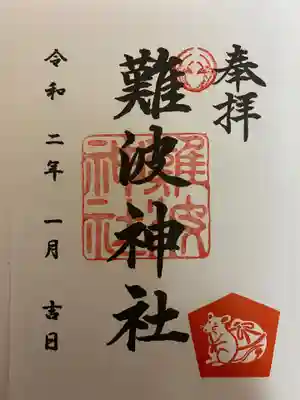 奉拝
難波神社
難波神社
令和二年一月吉日